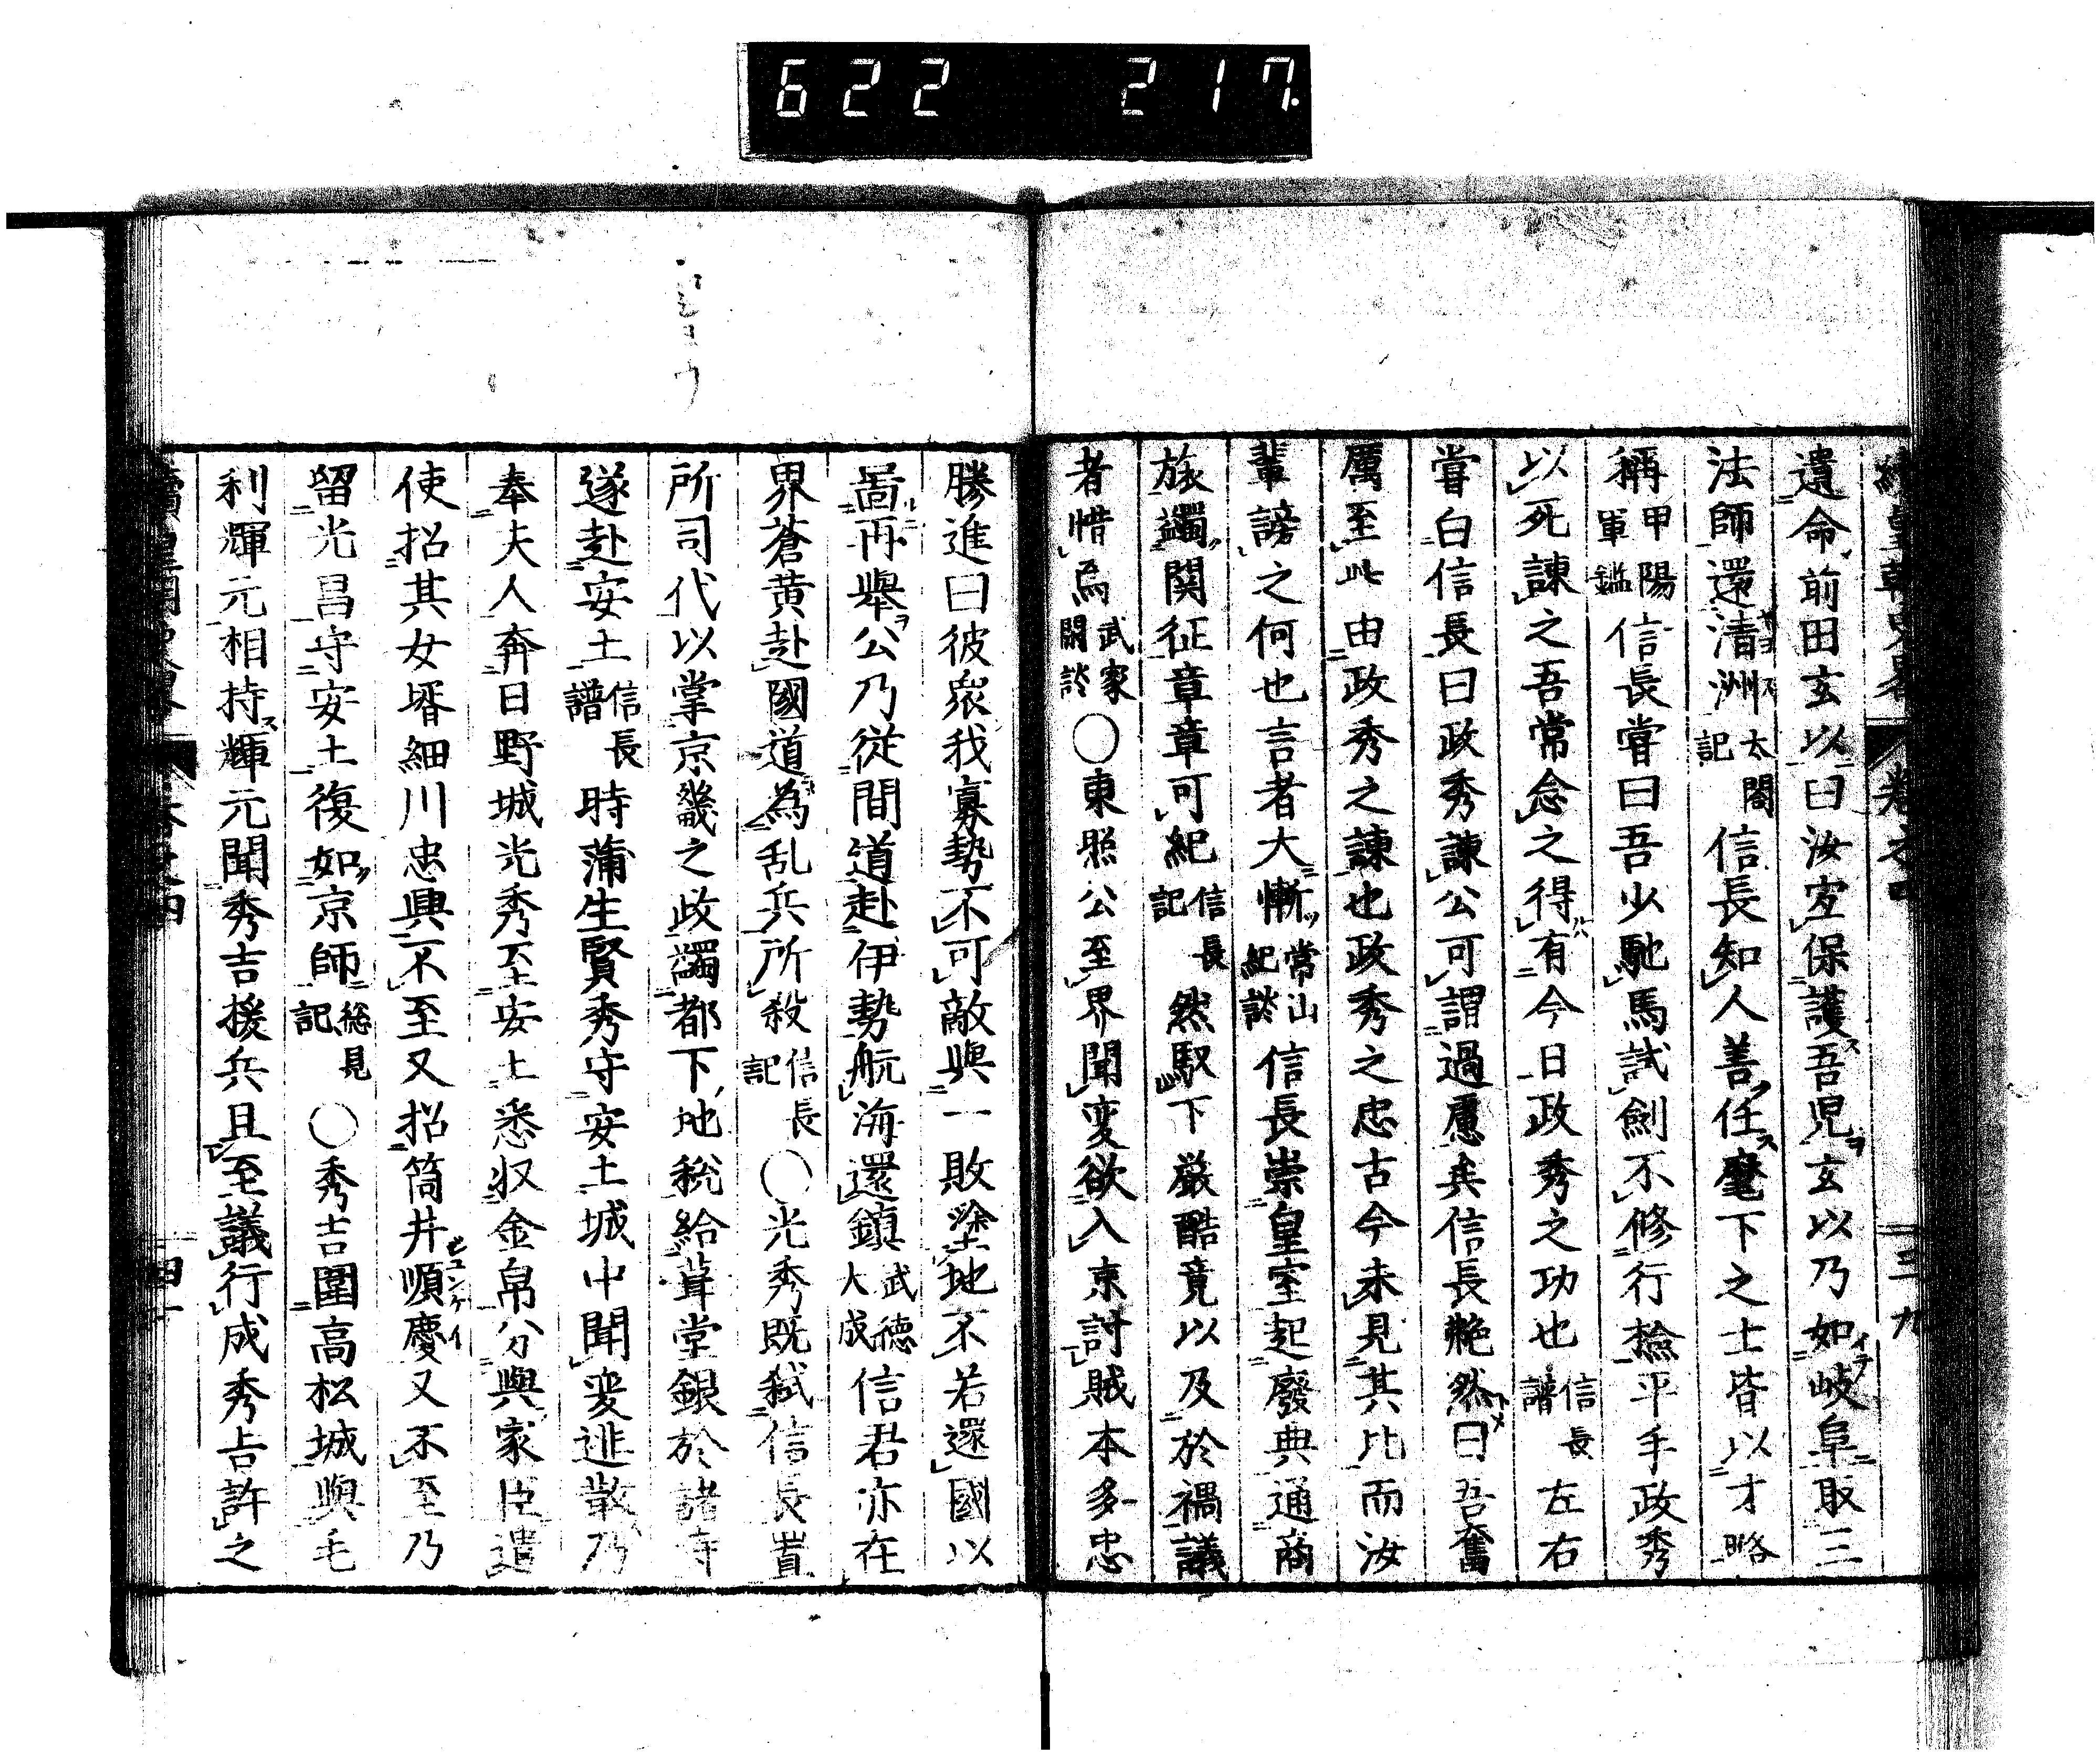 622 217.
續皇朝史畧 卷之四 三九
遺命前田玄以曰汝宜保護吾児玄以乃如岐阜取三
法師還清洲太閤記信長知人善任麾下之士皆以才略
稱甲陽軍鑑信長嘗曰吾少馳馬試劍不修行撿平手政秀
以死諫之吾常念之得有今日政秀之功也信長譜左右
嘗白信長曰政秀諫公可謂過慮矣信長艴然曰吾奮
厲至此由政秀之諫也政秀之忠古今未見其比而汝
輩謗之何也言者大慚常山紀談信長崇皇室起廢典通商
旅蠲関征章章可紀信長記然馭下厳酷竟以及於禍議
者惜焉武家閑談○東照公至界聞変欲入京討賊本多忠
勝進曰彼衆我寡勢不可敵與一敗塗地不若還國以
啚再舉公乃從間道赴伊勢航海還鎮武徳大成信君亦在
界蒼黄赴國道為乱兵所殺信長記○光秀既弑信長置
所司代以掌京畿之政蠲都下地税給葺堂銀於諸寺
遂赴安土信長譜時蒲生賢秀守安土城中聞変逃散乃
奉夫人奔日野城光秀至安土悉収金帛分與家臣遣
使招其女壻細川忠興不至又招筒井順慶又不至乃
留光昌守安土復如京師総見記○秀吉圍高松城與毛
利輝元相持輝元聞秀吉援兵且至議行成秀吉許之
續皇朝史畧 卷之四 四十